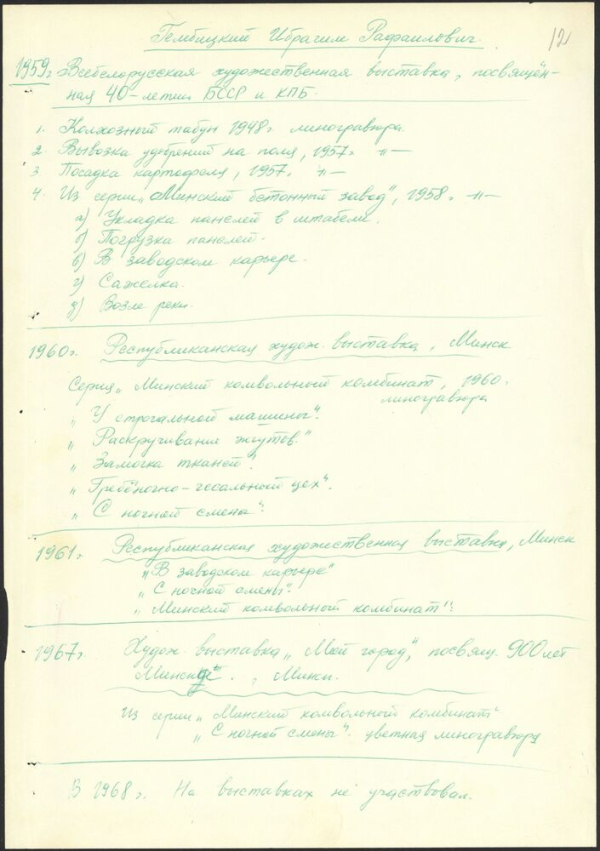 Гембицкий Ибрагим Рафаилович.
12
1959г. Всебелорусская художественная выставка, посвящён-
ная 40-летию БССР и КПБ.
1. Колхозный табун 1948г. линогравюра.
2. Вывозка удобрений на поля, 1957г. -"-
3. Посадка картофеля, 1957г. -"-
4. Из серии „Минский бетонный завод", 1958г. -"-
а) Укладка панелей в штабели.
б) Погрузка панелей.
в) В заводском карьере.
г) Сажелка.
д) Возле реки.
1960г. Республиканская худож. выставка, Минск
Серия „Минский комвольный комбинат, 1960г.
линогравюра
„У строгальной машины".
„Раскручивание жгутов"
„Замочка тканей".
„Гребёночно-чесальный цех".
„С ночной смены".
1961г. Республиканская художественная выставка, Минск
„В заводском карьере"
„С ночной смены".
„Минский комвольный комбинат".
1967г. Худож. выставка „Мой город", посвящ. 900 лет
Минску. Минск.
Из серии „Минский комвольный комбинат"
„С ночной смены". цветная линогравюра
В 1968г. На выставках не участвовал.